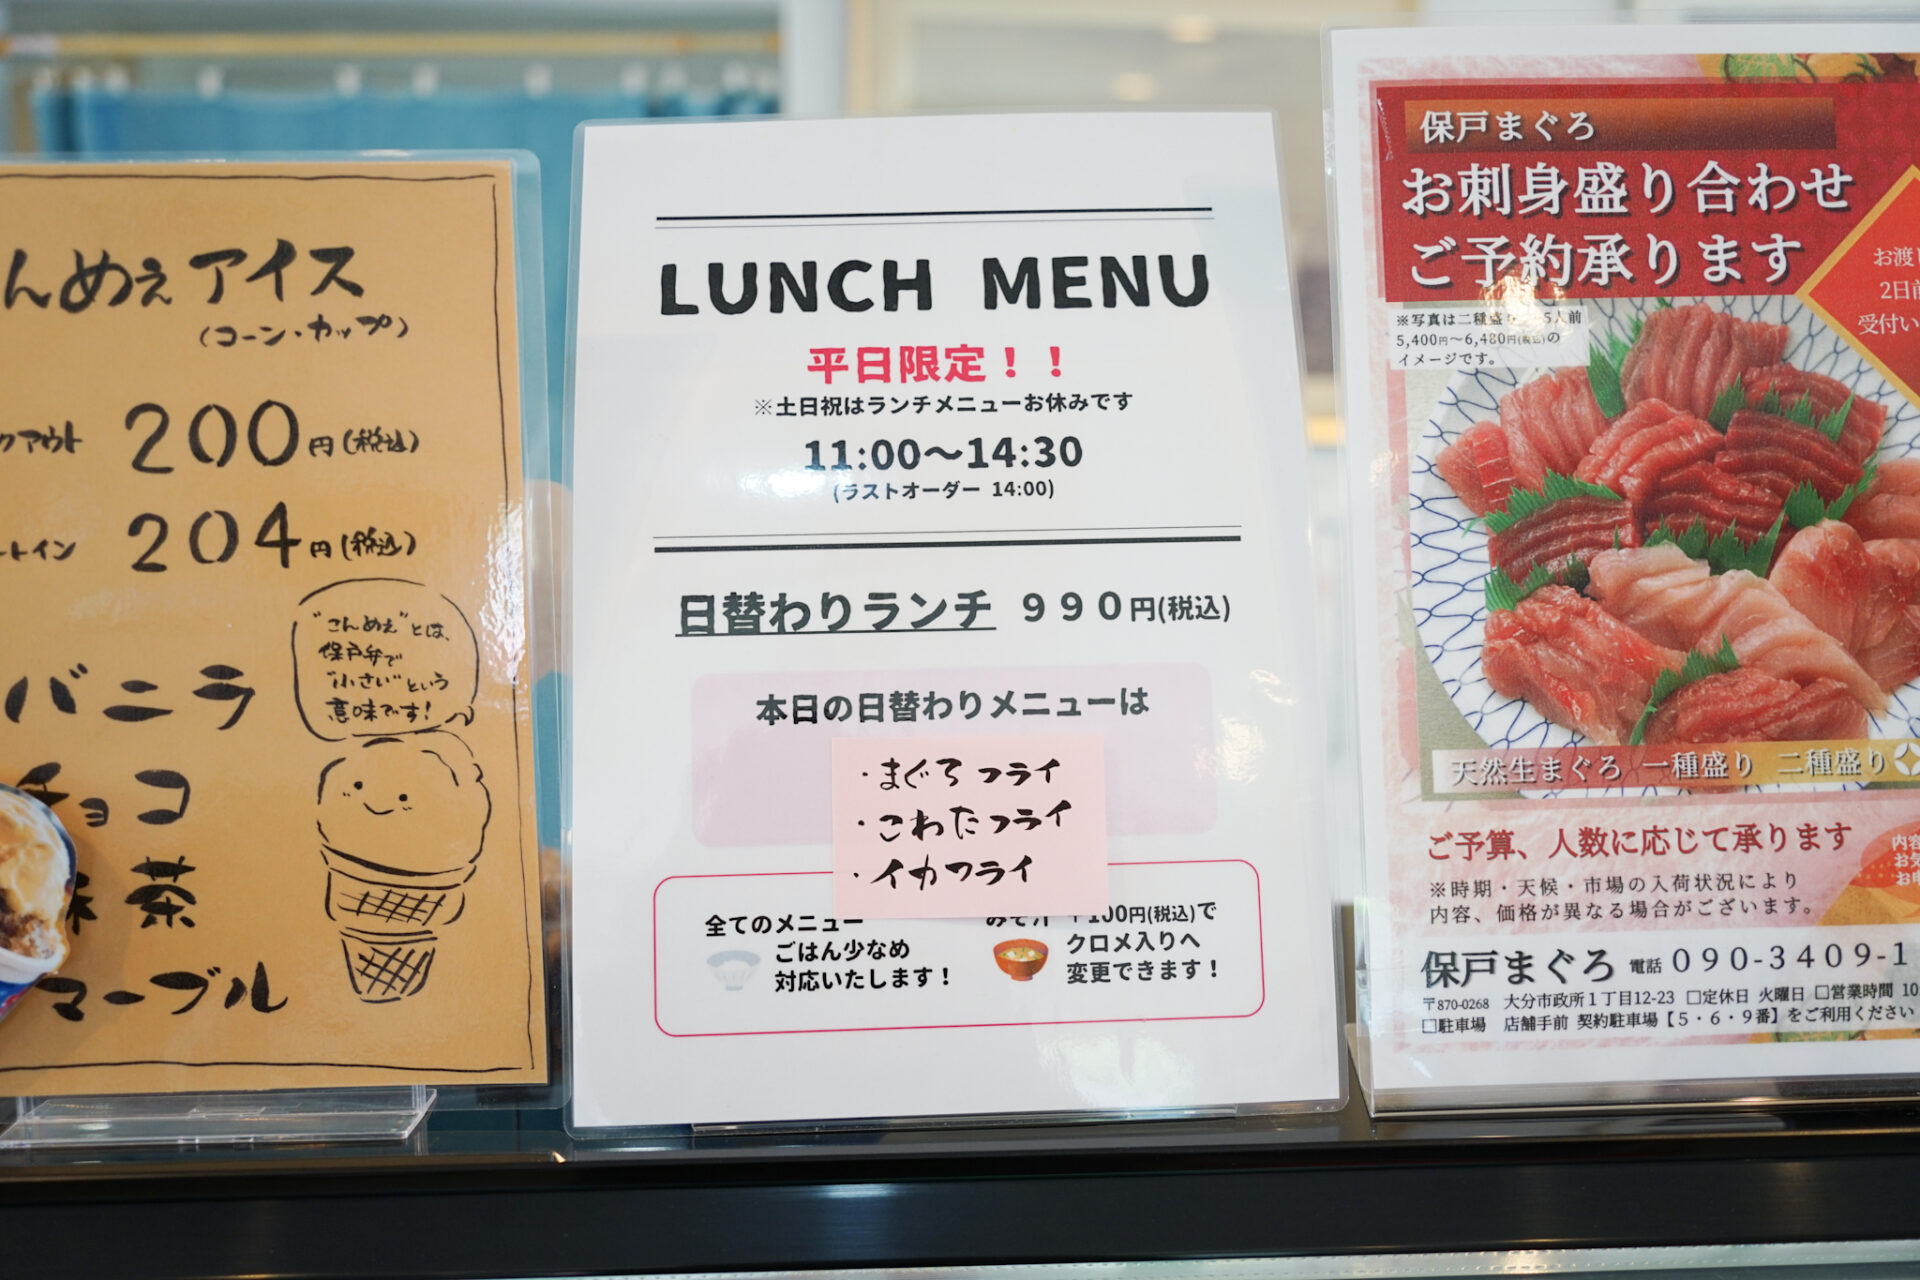 んめぇアイス
(コーン・カップ)
クアウト 200円(税込)
ートイン 204円(税込)
"こんめぇ"とは、
保戸弁で
"小さい"という
意味です!
バニラ
チョコ
茶
マーブル
LUNCH MENU
平日限定!!
※土日祝はランチメニューお休みです
11:00～14:30
(ラストオーダー 14:00)
日替わりランチ 990円(税込)
本日の日替わりメニューは
・まぐろフライ
・こわたフライ
・イカフライ
全てのメニュー
ごはん少なめ
対応いたします!
みそ汁 +100円(税込)で
クロメ入りへ
変更できます!
保戸まぐろ
お刺身盛り合わせ
ご予約承ります
お渡し
2日前
受付い
※写真は二種盛り 5人前
5,400円～6,480円(税込)の
イメージです。
天然生まぐろ 一種盛り 二種盛り
ご予算、人数に応じて承ります
※時期・天候・市場の入荷状況により
内容、価格が異なる場合がございます。
内容
お気
お申
保戸まぐろ 電話 090-3409-1
〒870-0268 大分市政所1丁目12-23 □定休日 火曜日 □営業時間 10
□駐車場 店舗手前 契約駐車場【5・6・9番】をご利用ください